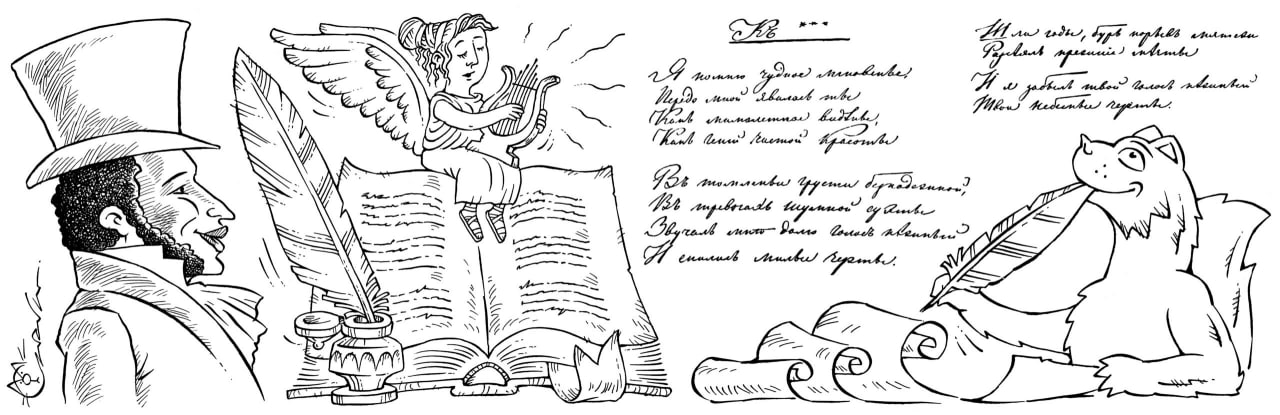 Къ ***
Я помню чудное мгновенье:
Передо мной явилась ты
Какъ мимолетное видѣнье,
Какъ геній чистой красоты
Въ томленьи грусти безнадежной,
Въ тревогахъ шумной суѣты
Звучалъ мнѣ долго голосъ нѣжный
И снились милые черты.
Шли годы, бурь порывъ мятежный
Разсѣялъ прежніе мѣчты
И я забылъ твой голосъ нѣжный
Твои небесные черты.